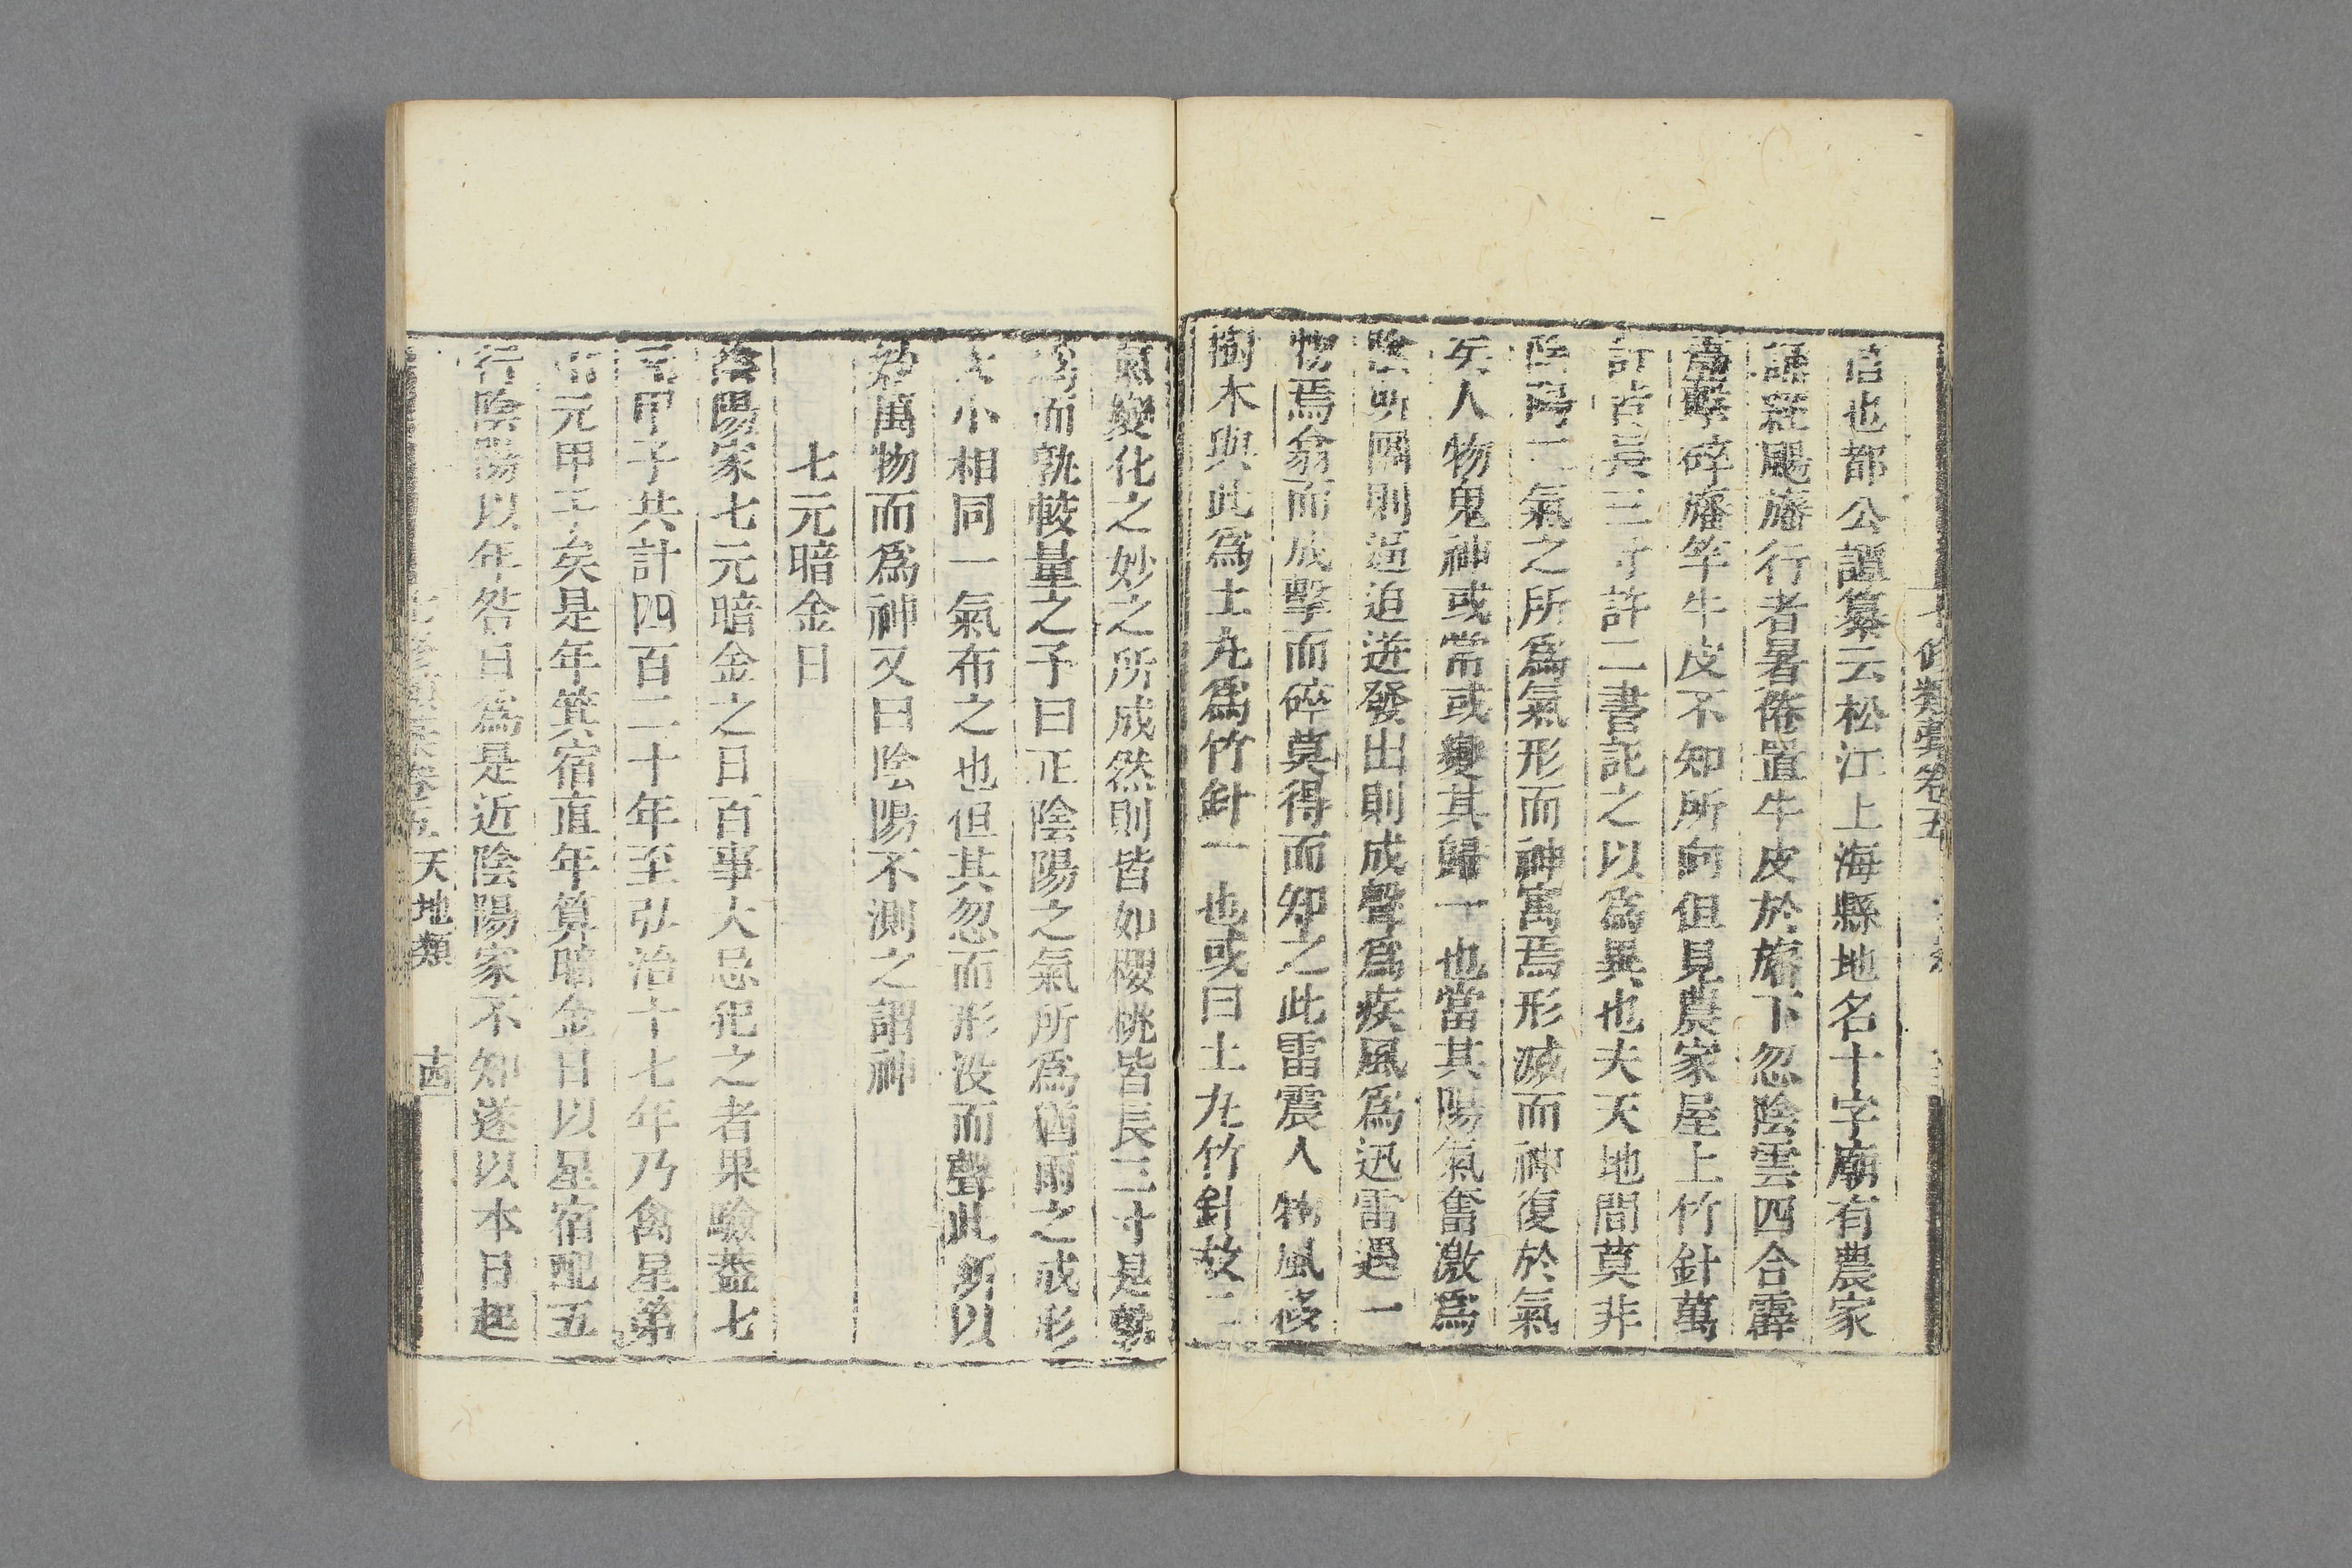 七修類藁卷五
信也都公譚纂云松江上海縣地名十字廟有農家
誦經颺旛行者暑倦置牛皮於旛下忽陰雲四合霹
靂擊碎旛竿牛皮不知所向但見農家屋上竹針萬
計皆長三寸許二書記之以爲異也夫天地間莫非
陰陽二氣之所爲氣形而神寓焉形滅而神復於氣
矣人物鬼神或常或變其歸一也當其陽氣奮激爲
陰所圍則逼迫迸發出則成聲爲疾風爲迅雷遇一
物焉翕而成擊而碎莫得而知之此雷震人物風移
樹木與此爲土丸爲竹針一也或曰土丸竹針故二
氣變化之妙之所成然則皆如櫻桃皆長三寸是孰
爲而孰較量之予曰正陰陽之氣所爲猶雨之或形
大小相同一氣布之也但其忽而形没而聲此所以
妙萬物而爲神又曰陰陽不測之謂神
七元暗金日
陰陽家七元暗金之日百事大忌犯之者果驗葢七
元甲子共計四百二十年至弘治十七年乃禽星第
元甲子矣是年箕宿直年算暗金日以星宿配五
行陰陽以年咎日爲是近陰陽家不知遂以本日起
七修類藁卷五 天地類 十四